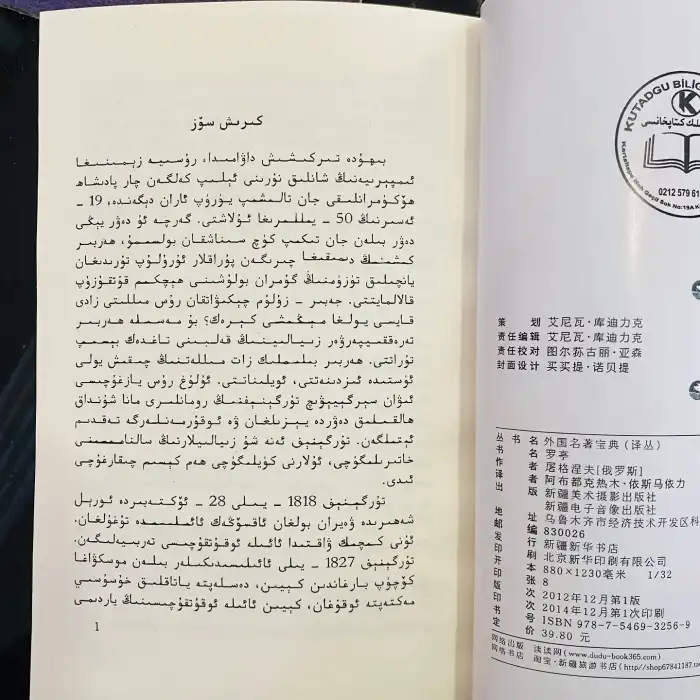 كىرىش سۆز
بىھۇدە تىركىشىش داۋامىدا، رۇسىيە زېمىنىغا
ئىمپېرىيەنىڭ شانلىق نۇرىنى ئېلىپ كەلگەن چار پادىشاھ
ھۆكۈمرانلىقى جان تالىشىپ يۈرۈپ ئاران دېگەندە، 19 -
ئەسىرنىڭ 50 - يىللىرىغا ئۇلاشتى. گەرچە ئۇ دەۋر يېڭى
دەۋر بىلەن جان تىكىپ كۈچ سىناشقان بولسىمۇ، ھەربىر
كىشىنىڭ دىمىقىغا چىرىگەن پۇراقلار ئۇرۇلۇپ تۇرىدىغان
يانچىلىق تۈزۈمنىڭ گۇمران بولۇشىنى ھېچكىم قۇتقۇزۇپ
قالالمايتتى. جەبىر - زۇلۇم چېكىۋاتقان رۇس مىللىتى زادى
قايسى يولغا مېڭىشى كېرەك؟ بۇ مەسىلە ھەربىر
تەرەققىيپەرۋەر زىيالىينىڭ قەلبىنى تاغدەك بېسىپ
تۇراتتى. ھەربىر بىلىملىك زات مىللەتنىڭ چىقىش يولى
ئۈستىدە ئىزدىنەتتى، ئويلىناتتى. ئۇلۇغ رۇس يازغۇچىسى
ئىۋان سېرگېيېۋىچ تۇرگېنېفنىڭ رومانلىرى مانا شۇنداق
ھالقىلىق دەۋردە يېزىلغان ۋە ئوقۇرمەنلەرگە تەقدىم
ئېتىلگەن. تۇرگېنېف ئەنە شۇ زىيالىيلارنىڭ سالنامىسىنى
خاتىرىلىگۈچى، ئۇلارنى كۈيلىگۈچى ھەم كېسىم چىقارغۇچى
ئىدى.
تۇرگېنېف 1818 - يىلى 28 - ئۆكتەبىردە ئوريول
شەھىرىدە ۋەيران بولغان ئاقسۆڭەك ئائىلىسىدە تۇغۇلغان.
ئۇنى كىچىك ۋاقتىدا ئائىلە ئوقۇتقۇچىسى تەربىيەلىگەن.
تۇرگېنېف 1827 - يىلى ئائىلىسىدىكىلەر بىلەن موسكۋاغا
كۆچۈپ بارغاندىن كېيىن، دەسلەپتە ياتاقلىق خۇسۇسىي
مەكتەپتە ئوقۇغان، كېيىن ئائىلە ئوقۇتقۇچىسىنىڭ ياردىمى
1
KUTADGU BİLİG
K
كىتاپخانىسى
Kartaltepe Mah. Geçit Sok No:19A
0212 579 61
策 划 艾尼瓦·库迪力克
责任编辑 艾尼瓦·库迪力克
责任校对 图尔荪古丽·亚森
封面设计 买买提·诺贝提
丛 书 名 外国名著宝典（译丛）
书 名 罗亭
作 者 屠格涅夫[俄罗斯]
译 者 阿布都克热木·依斯马依力
出 版 新疆美术摄影出版社
新疆电子音像出版社
地 址 乌鲁木齐市经济技术开发区科
邮 编 830026
发 行 新疆新华书店
印 刷 北京新华印刷有限公司
开 本 880×1230毫米 1/32
印 张 8
版 次 2012年12月第1版
印 次 2014年12月第1次印刷
书 号 ISBN 978-7-5469-3256-9
定 价 39.80 元
网络出版 读读网(www.dudu-book365.com)
网络书店 淘宝·新疆旅游书店(http://shop67841187.